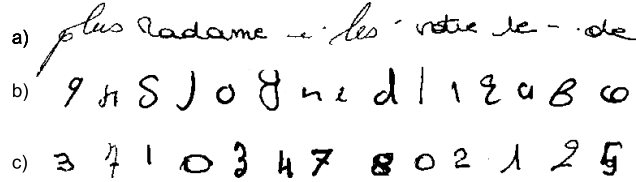 a) plus Madame - i les votre le - de
b) 9 n S J o y n e d l 1 q a B
c) 3 7 1 0 3 4 7 8 0 2 1 2 5